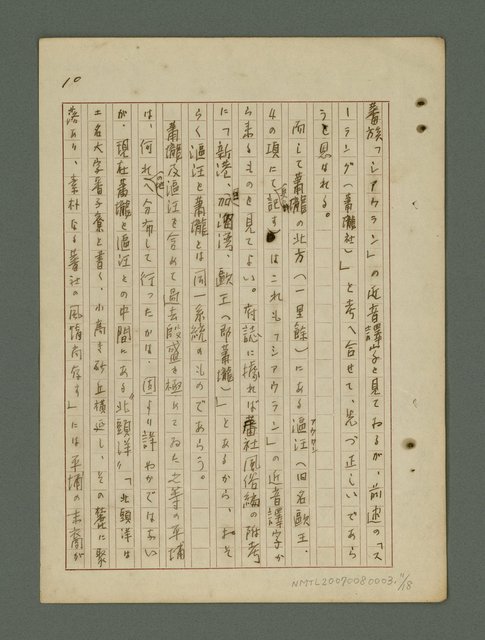 10
蕃族「シアウラン」の近音譯字と見てゐるが、前述の「ス
ーラング（蕭壠社）」と考へ合せて、先づ正しいであら
うと思はれる。
而して蕭壠の北方（一里餘）にある漚汪（旧名歐王、
アウワン
4の項にて記す）はこれも「シアウラン」の近音譯字か
ら来るものと見てよい。府誌に據れば蕃社風俗編の附考
に「新港、加溜湾、歐王（即蕭壠）」とあるから、おそ
らく漚汪と蕭壠とは同一系統のものであらう。
蕭壠及漚汪を含めて過去殷盛を極めてゐた之等の平埔
は、何れへ分布して行ったかは、固より詳かではない
が、現在蕭壠と漚汪との中間にある"北頭洋"「北頭洋は
土名大字番子寮と書く、小高き砂丘横延し、その麓に聚
落あり、素朴なる蕃社の風情尚存す」には平埔の末裔が
NMTL20070080003. 11/18